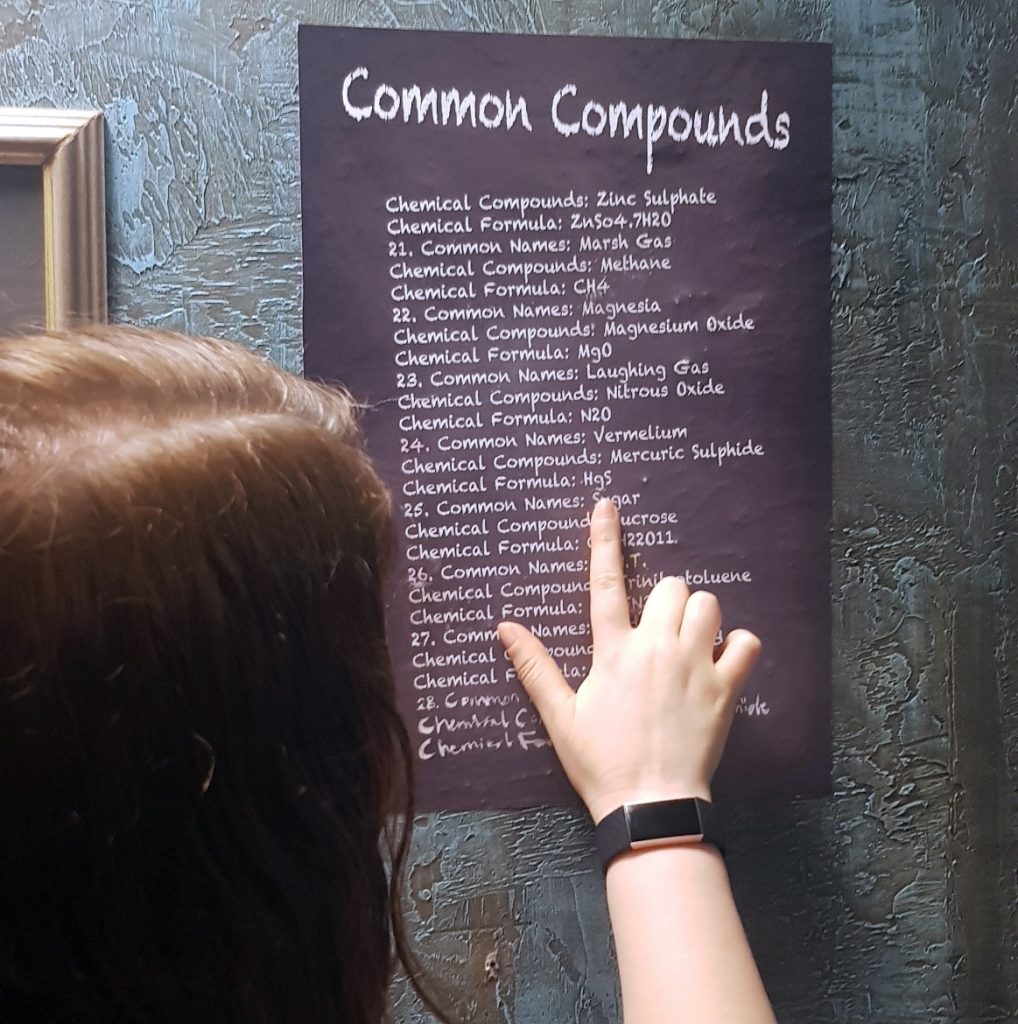 Common Compounds
Chemical Compounds: Zinc Sulphate
Chemical Formula: ZnSo4.7H2O
21. Common Names: Marsh Gas
Chemical Compounds: Methane
Chemical Formula: CH4
22. Common Names: Magnesia
Chemical Compounds: Magnesium Oxide
Chemical Formula: MgO
23. Common Names: Laughing Gas
Chemical Compounds: Nitrous Oxide
Chemical Formula: N2O
24. Common Names: Vermelium
Chemical Compounds: Mercuric Sulphide
Chemical Formula: HgS
25. Common Names: Sugar
Chemical Compound ucrose
Chemical Formula: H22O11.
26. Common Names: .T.
Chemical Compoun
Chemical Formula:
27. Common Names:
Chemical
Chemical
28. Common
Chemical
Chemical